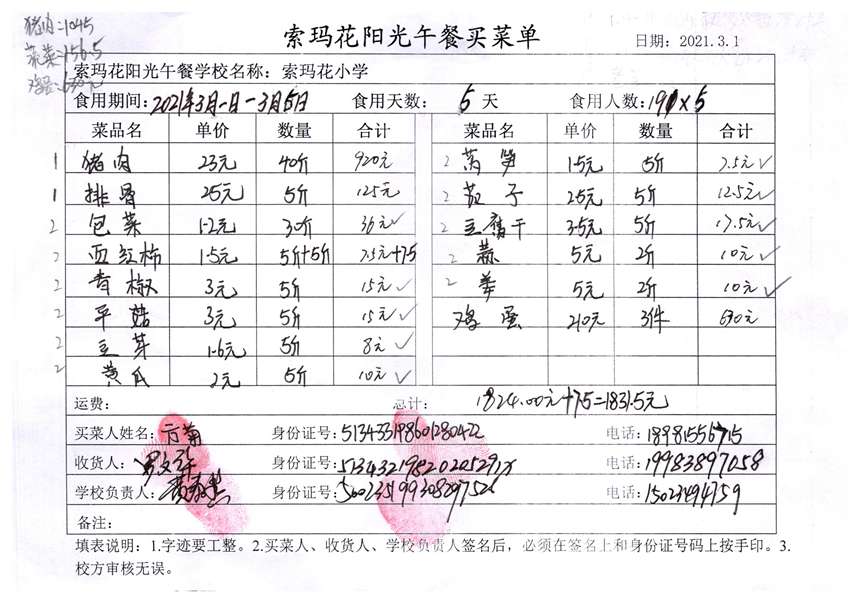 猪肉:1045
蔬菜:156.5
鸡蛋:630元
索玛花阳光午餐买菜单
日期：2021.3.1
索玛花阳光午餐学校名称：索玛花小学
食用期间：2021年3月1日-3月5日 食用天数：5 天 食用人数：191×5
菜品名 单价 数量 合计 菜品名 单价 数量 合计
1 猪肉 23元 40斤 920元 2 莴笋 1.5元 5斤 7.5元✓
1 排骨 25元 5斤 125元 2 茄子 2.5元 5斤 12.5元✓
2 包菜 1.2元 30斤 36元✓ 2 豆腐干 3.5元 5斤 17.5元✓
2 西红柿 1.5元 5斤+5斤 7.5元+7.5 2 蒜 5元 2斤 10元✓
2 青椒 3元 5斤 15元✓ 2 姜 5元 2斤 10元✓
2 平菇 3元 5斤 15元✓ 鸡蛋 210元 3件 630元
2 豆芽 1.6元 5斤 8元✓
2 黄瓜 2元 5斤 10元✓
运费： 总计： 1824.00元+7.5=1831.5元
买菜人姓名： 身份证号：513433198601280422 电话：18981556715
收货人： 身份证号：51343219820205291X 电话：19983897058
学校负责人： 身份证号： 电话：15023494759
备注：
填表说明：1.字迹要工整。2.买菜人、收货人、学校负责人签名后，必须在签名上和身份证号码上按手印。3.
校方审核无误。